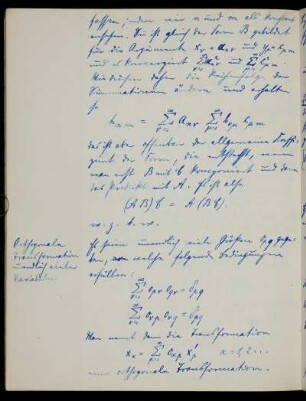 fassen, indem wir n und m als konstant
ansehen. Sie ist gleich der Form B gebildet
für die Argumente x_r = a_nr und y_p = c_pm
und es konvergiert Σ a²_nr und Σ c²_pm.
Wir dürfen daher die Reihenfolge der
Summationen ändern und erhalten
so
k_nm = Σ a_nr Σ b_rp c_pm
das ist aber offenbar der allgemeine Koeffi-
zient der Form, die entsteht, wenn
man erst B mit C komponiert und dann
das Produkt mit A. Es ist also
(AB)C = A(BC).
w. z. b. w.
Orthogonale
Transformation
unendlich vieler
Variabeln.
Es seien unendlich viele Größen o_pq gege-
ben, welche folgende Bedingungen
erfüllen:
Σ o_pr o_qr = δ_pq
Σ o_rp o_rq = δ_pq
Man nennt dann die Transformation
x_n = Σ o_np x'_p n = 1, 2 ...
eine orthogonale Transformation.